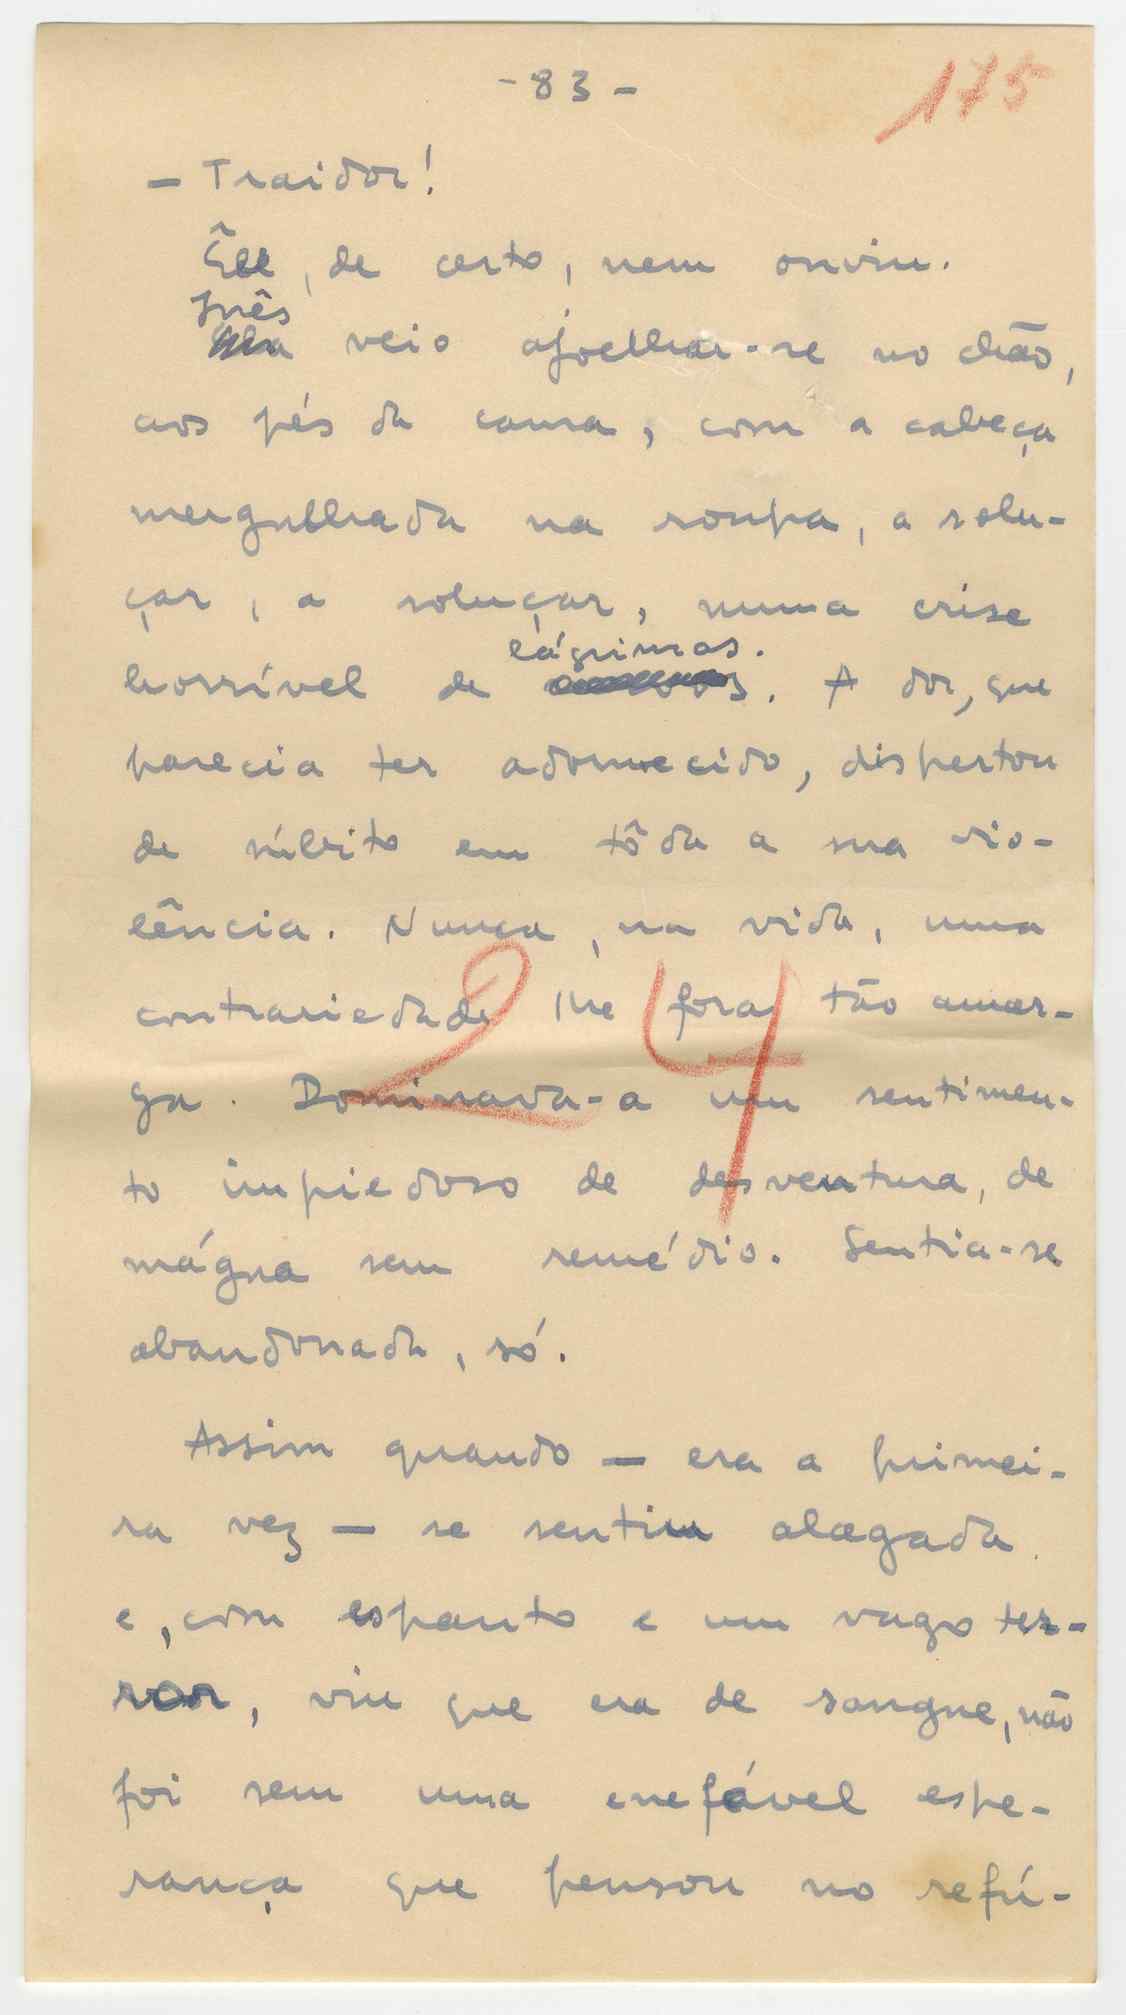 - 83 -
175
— Traidor!
Êle, de certo, nem ouviu.
Inês
veio ajoelhar-se no chão,
aos pés da cama, com a cabeça
mergulhada na roupa, a solu-
çar, a soluçar, numa crise
lágrimas.
horrível de . A dor, que
parecia ter adormecido, dispertou
de súbito em tôda a sua vio-
lência. Nunca, na vida, uma
contrariedade lhe fora tão amar-
24
ga. Dominava-a um sentimen-
to impiedoso de desventura, de
mágua sem remédio. Sentia-se
abandonada, só.
Assim quando — era a primei-
ra vez — se sentiu alagada
e, com espanto e um vago ter-
ror, viu que era de sangue, não
foi sem uma inefável espe-
rança que pensou no refú-